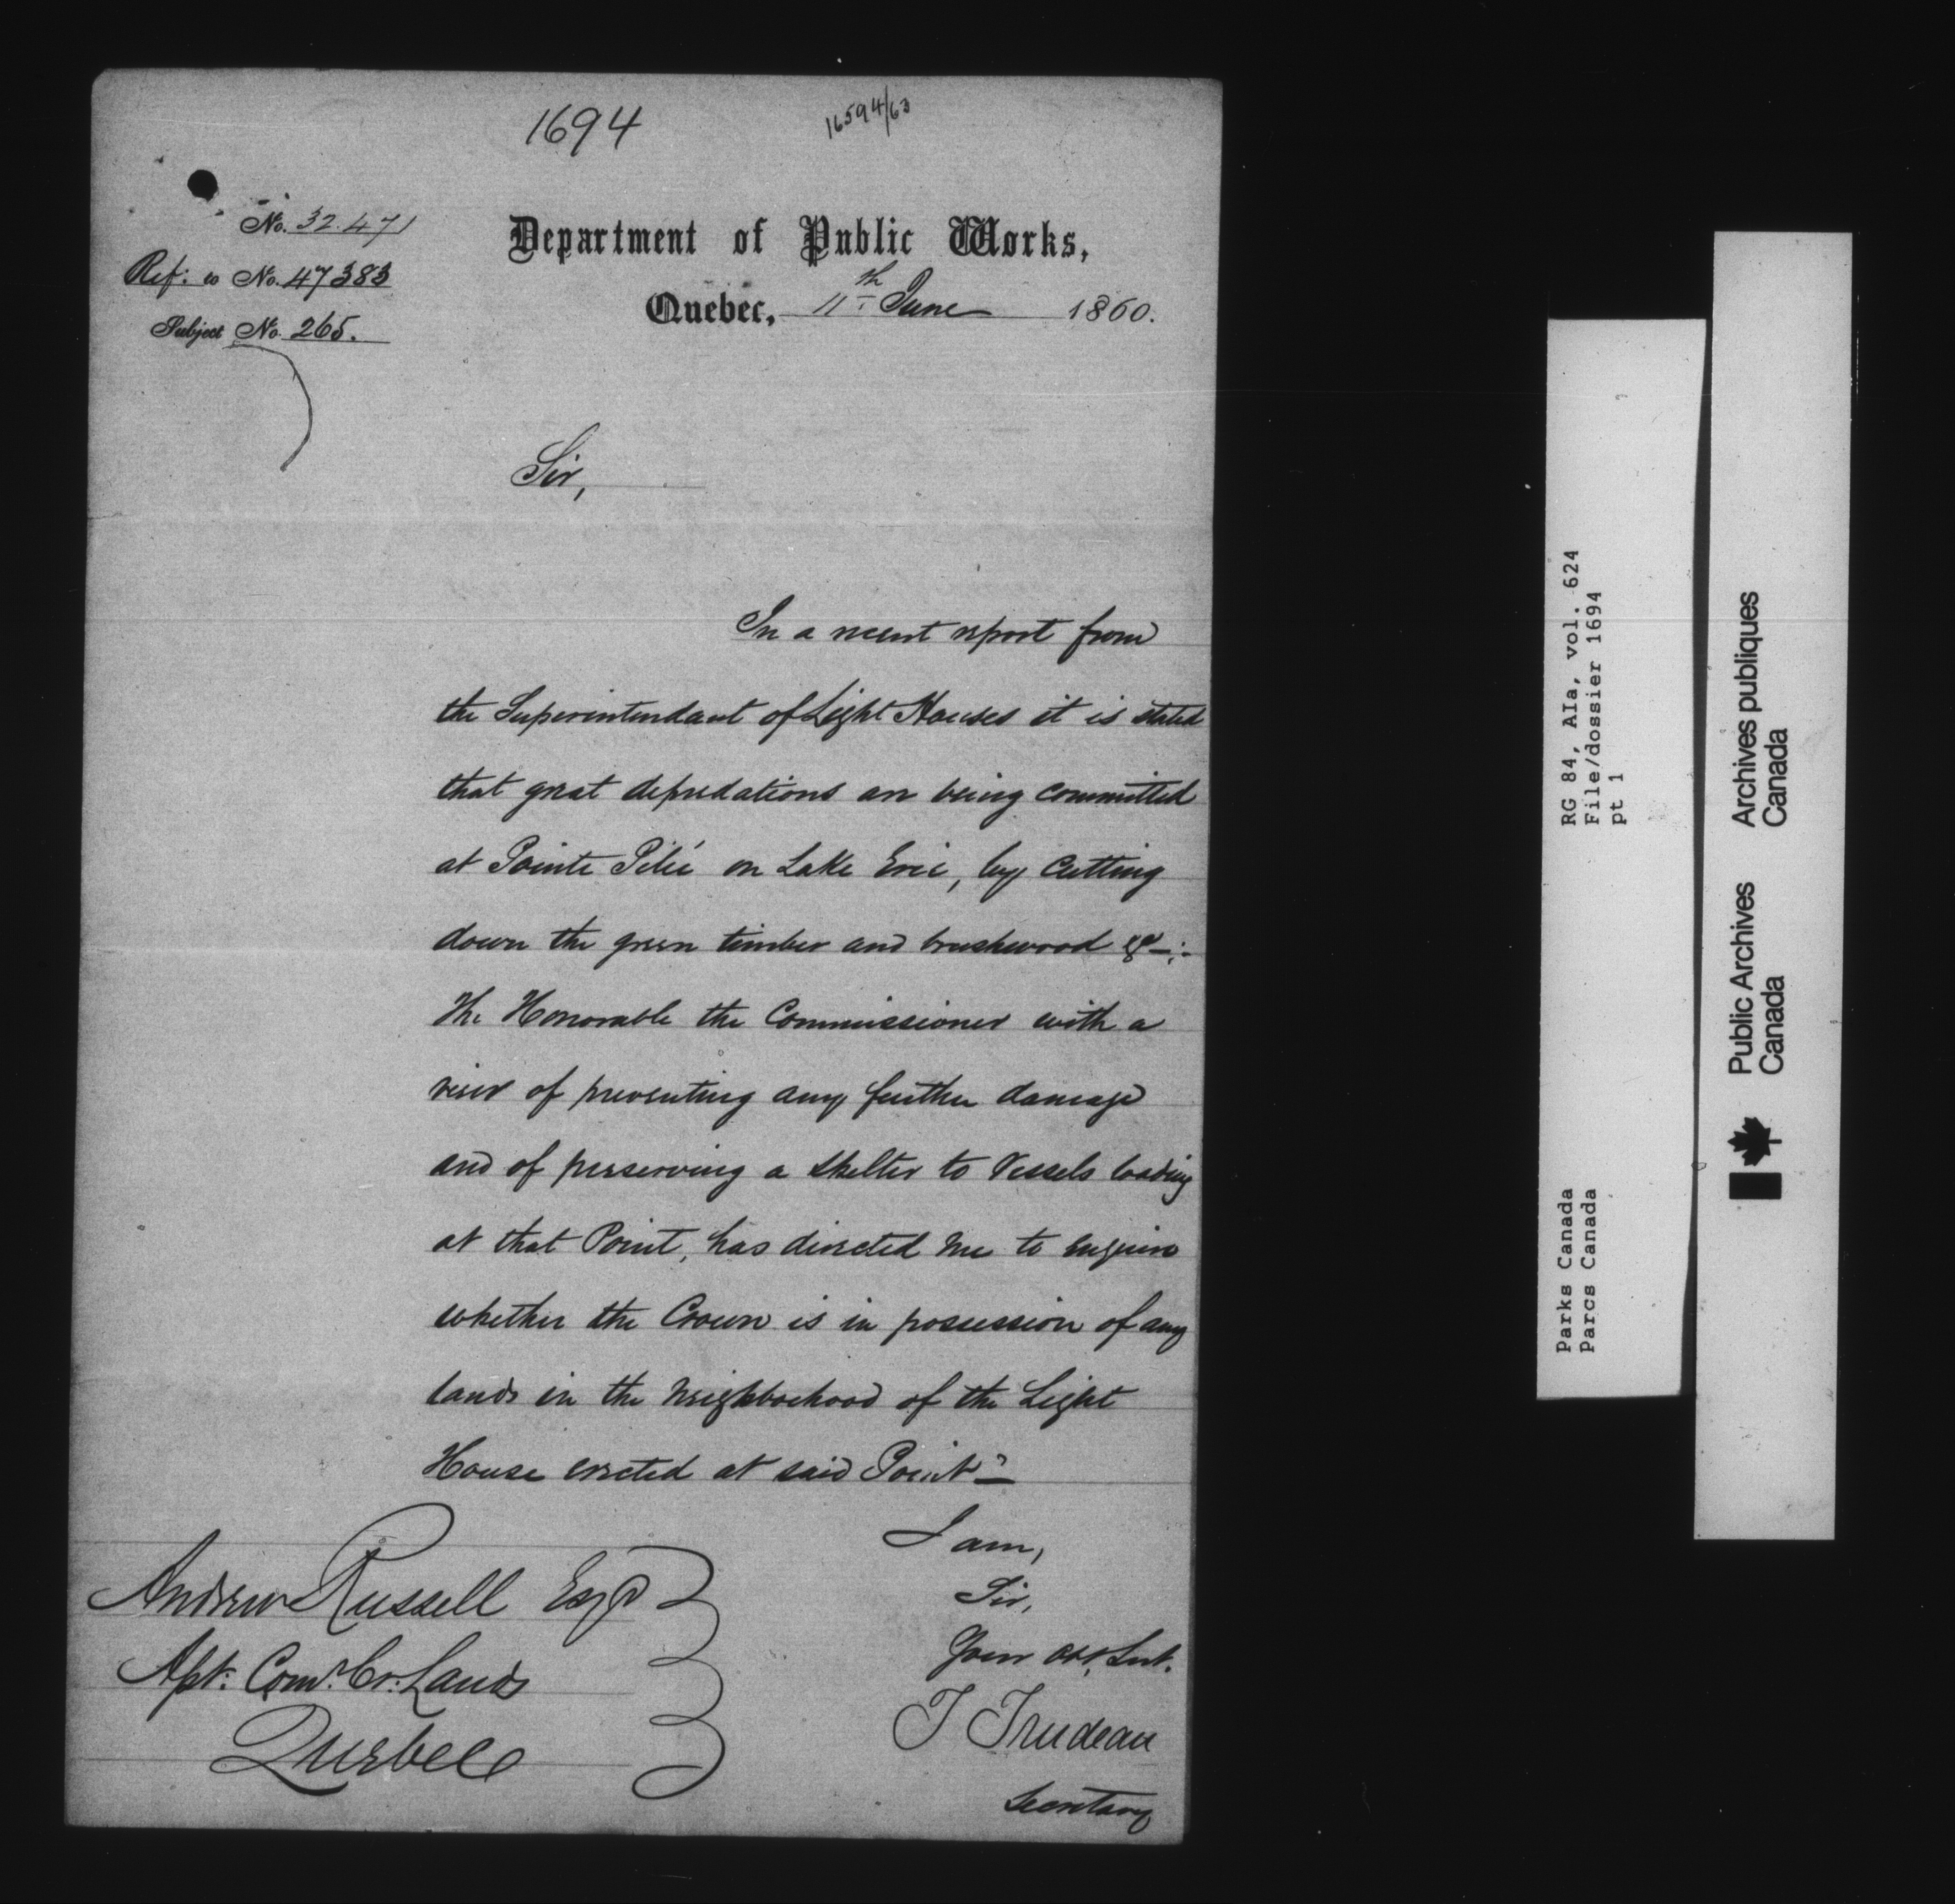 1694
16594/63
No. 32.471
Ref: to No. 47383
Subject No. 265.
Department of Public Works,
Quebec, 11th June 1860.
Sir,
In a recent report from
the Superintendant of Light Houses it is stated
that great depredations are being committed
at Pointe Pelée on Lake Erie, by cutting
down the green timber and brushwood &c.
The Honorable the Commissioner with a
view of preventing any further damage
and of preserving a shelter to Vessels loading
at that Point, has directed me to enquire
whether the Crown is in possession of any
lands in the neighborhood of the Light
House erected at said Point
I am,
Sir,
Your obt. Servt.
T Trudeau
Secretary
Andrew Russell Esqr
Asst. Comr. Cr. Lands
Quebec
RG 84, AIa, vol. 624
File/dossier 1694
pt 1
Parks Canada
Parcs Canada
Public Archives
Canada
Archives publiques
Canada